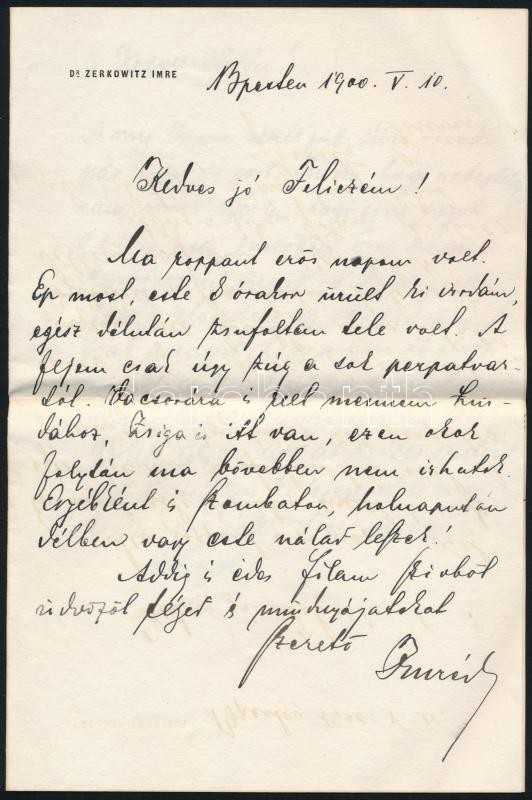 Dr ZERKOWITZ IMRE
Bpesten 1900. V. 10.
Kedves jó Feliczém!
Ma roppant erős napom volt.
Ép most, este 8 órakor ürült ki irodám,
egész délután zsúfoltan tele volt. A
fejem csak úgy zúg a sok perpatvar-
tól. Vacsorára is kell mennem
dához, Zsiga is itt van, ezen okok
folytán ma bővebben nem irhatok.
Egyébként is szombaton, holnapután
délben vagy este nálad leszek!
Addig is édes filam szivből
üdvözöl téged és mindnyájatokat
szerető
Imréd